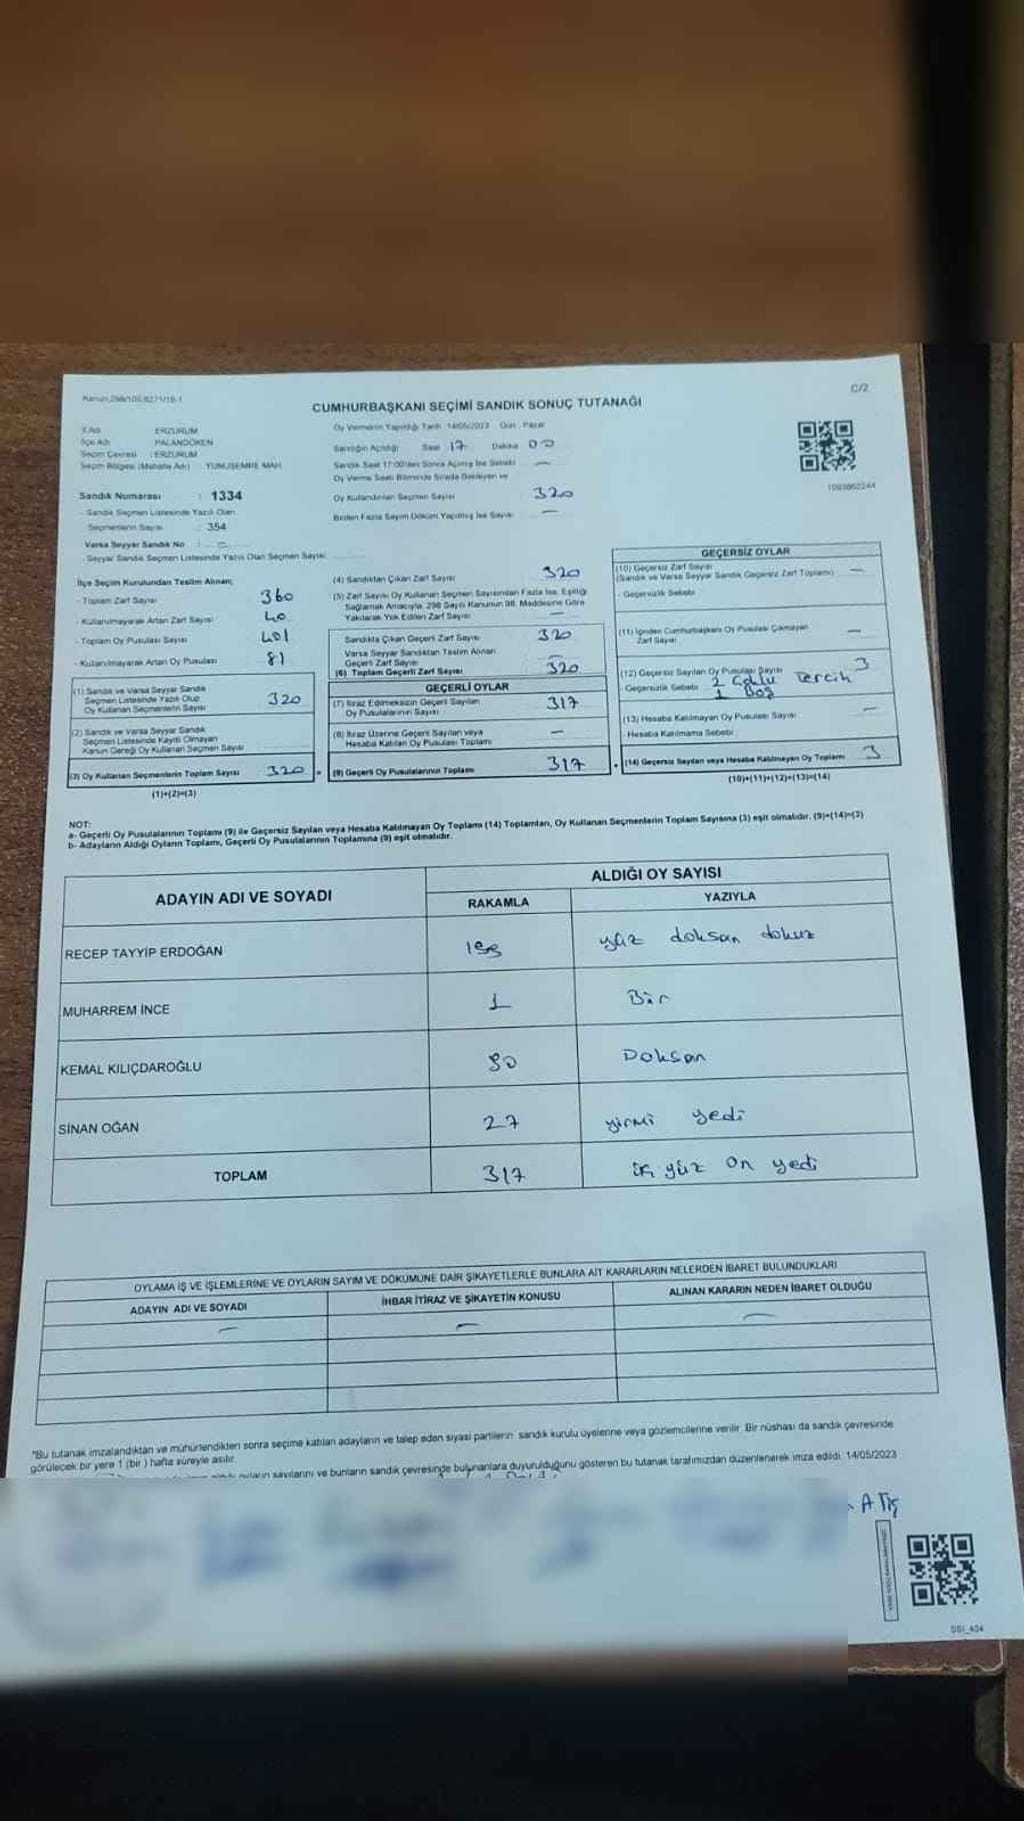 C/2
CUMHURBAŞKANI SEÇİMİ SANDIK SONUÇ TUTANAĞI
İl Adı ERZURUM
İlçe Adı PALANDÖKEN
Seçim Çevresi : ERZURUM
Seçim Bölgesi (Mahalle Adı) YUNUSEMRE MAH.
Sandık Numarası : 1334
- Sandık Seçmen Listesinde Yazılı Olan
Seçmenlerin Sayısı : 354
Varsa Seyyar Sandık No : -
- Seyyar Sandık Seçmen Listesinde Yazılı Olan Seçmen Sayısı
Oy Vermenin Yapıldığı Tarih 14/05/2023 Gün : Pazar
Sandığın Açıldığı: Saat 17 Dakika 00
Sandık Saat 17:00'den Sonra Açılmış İse Sebebi —
Oy Verme Saati Bitiminde Sırada Bekleyen ve
Oy Kullandırılan Seçmen Sayısı 320
Birden Fazla Sayım Döküm Yapılmış İse Sayısı —
İlçe Seçim Kurulundan Teslim Alınan;
- Toplam Zarf Sayısı 360
- Kullanılmayarak Artan Zarf Sayısı 40
- Toplam Oy Pusulası Sayısı 401
- Kullanılmayarak Artan Oy Pusulası 81
(1) Sandık ve Varsa Seyyar Sandık
Seçmen Listesinde Yazılı Olup
Oy Kullanan Seçmenlerin Sayısı 320
(2) Sandık ve Varsa Seyyar Sandık
Seçmen Listesinde Kayıtlı Olmayan
Kanun Gereği Oy Kullanan Seçmen Sayısı
(3) Oy Kullanan Seçmenlerin Toplam Sayısı 320
(1)+(2)=(3)
(4) Sandıktan Çıkan Zarf Sayısı 320
(5) Zarf Sayısı Oy Kullanan Seçmen Sayısından Fazla İse, Eşitliği
Sağlamak Amacıyla, 298 Sayılı Kanunun 98. Maddesine Göre
Yakılarak Yok Edilen Zarf Sayısı —
Sandıkta Çıkan Geçerli Zarf Sayısı 320
Varsa Seyyar Sandıktan Teslim Alınan
Geçerli Zarf Sayısı —
(6) Toplam Geçerli Zarf Sayısı 320
GEÇERLİ OYLAR
(7) İtiraz Edilmeksizin Geçerli Sayılan
Oy Pusulalarının Sayısı 317
(8) İtiraz Üzerine Geçerli Sayılan veya
Hesaba Katılan Oy Pusulası Toplamı —
(9) Geçerli Oy Pusulalarının Toplamı 317
GEÇERSİZ OYLAR
(10) Geçersiz Zarf Sayısı
(Sandık ve Varsa Seyyar Sandık Geçersiz Zarf Toplamı) —
- Geçersizlik Sebebi
(11) İçinden Cumhurbaşkanı Oy Pusulası Çıkmayan
Zarf Sayısı —
(12) Geçersiz Sayılan Oy Pusulası Sayısı 3
- Geçersizlik Sebebi 2 Çoklu Tercih
1 Boş
(13) Hesaba Katılmayan Oy Pusulası Sayısı —
- Hesaba Katılmama Sebebi
(14) Geçersiz Sayılan veya Hesaba Katılmayan Oy Toplamı 3
(10)+(11)+(12)+(13)=(14)
NOT:
a- Geçerli Oy Pusulalarının Toplamı (9) ile Geçersiz Sayılan veya Hesaba Katılmayan Oy Toplamı (14) Toplamları, Oy Kullanan Seçmenlerin Toplam Sayısına (3) eşit olmalıdır. (9)+(14)=(3)
b- Adayların Aldığı Oyların Toplamı, Geçerli Oy Pusulalarının Toplamına (9) eşit olmalıdır.
ADAYIN ADI VE SOYADI
ALDIĞI OY SAYISI
RAKAMLA YAZIYLA
RECEP TAYYİP ERDOĞAN 199 yüz doksan dokuz
MUHARREM İNCE 1 Bir
KEMAL KILIÇDAROĞLU 90 Doksan
SİNAN OĞAN 27 yirmi yedi
TOPLAM 317 yüz On yedi
OYLAMA İŞ VE İŞLEMLERİNE VE OYLARIN SAYIM VE DÖKÜMÜNE DAİR ŞİKAYETLERLE BUNLARA AİT KARARLARIN NELERDEN İBARET BULUNDUKLARI
ADAYIN ADI VE SOYADI İHBAR İTİRAZ VE ŞİKAYETİN KONUSU ALINAN KARARIN NEDEN İBARET OLDUĞU
— — —
"Bu tutanak imzalandıktan ve mühürlendikten sonra seçime katılan adayların ve talep eden siyasi partilerin sandık kurulu üyelerine veya gözlemcilerine verilir. Bir nüshası da sandık çevresinde
görülecek bir yere 1 (bir) hafta süreyle asılır.
sayılarını ve bunların sandık çevresinde bulunanlara duyurulduğunu gösteren bu tutanak tarafımızdan düzenlenerek imza edildi. 14/05/2023
SSI_404